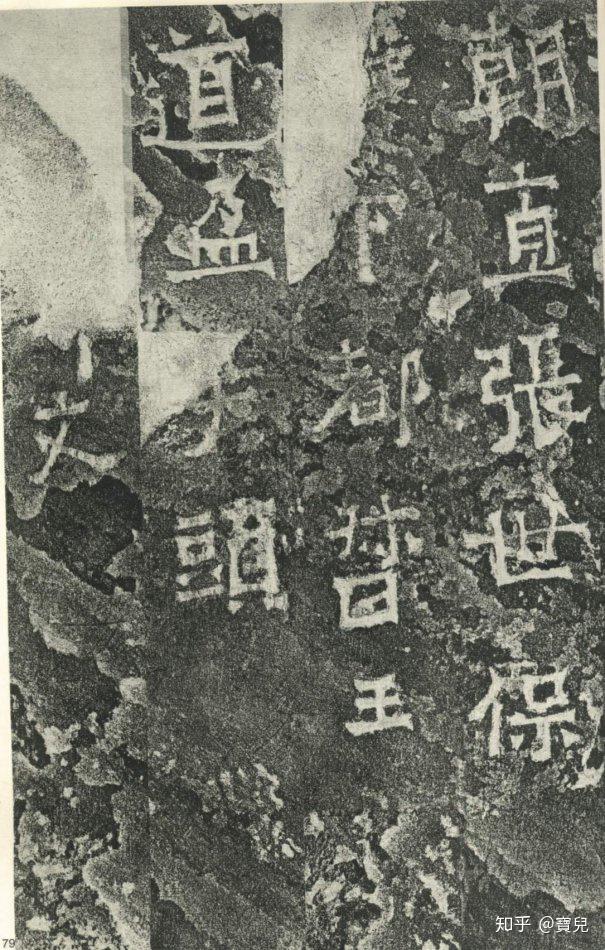 朝直張世保
下都督王
道盈
頭
文
79
知乎 @寶兒